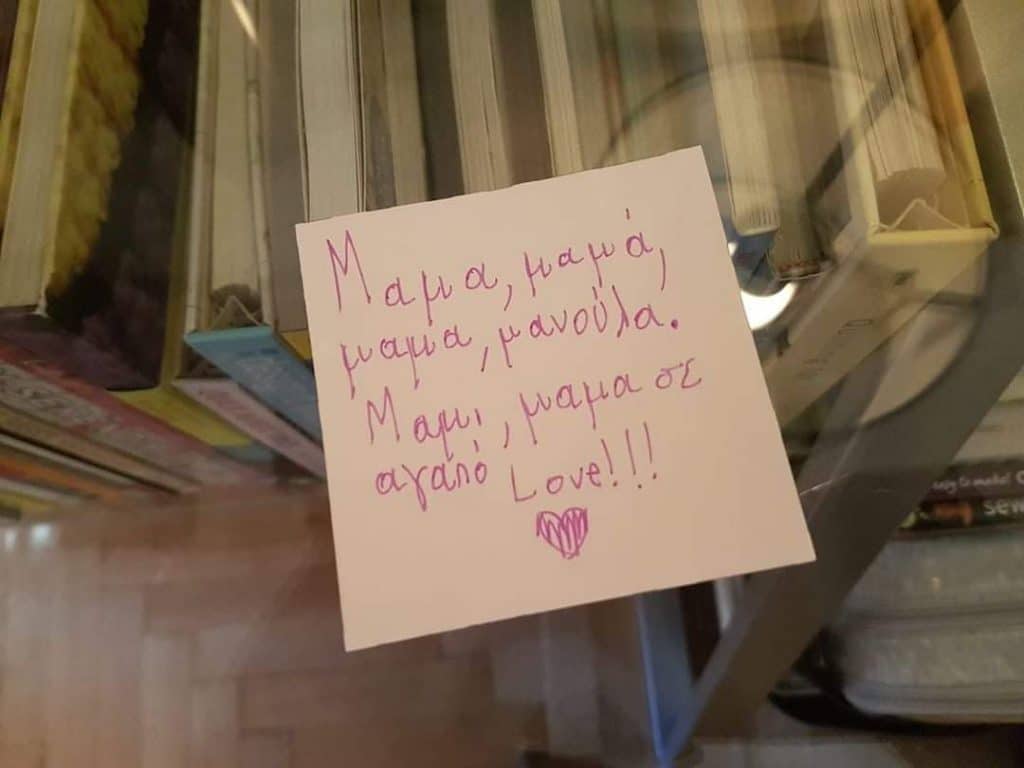 Μαμα, μαμά,
μαμα, μανούλα.
Μαμι, μαμα σε
αγαπό Love!!!
sew